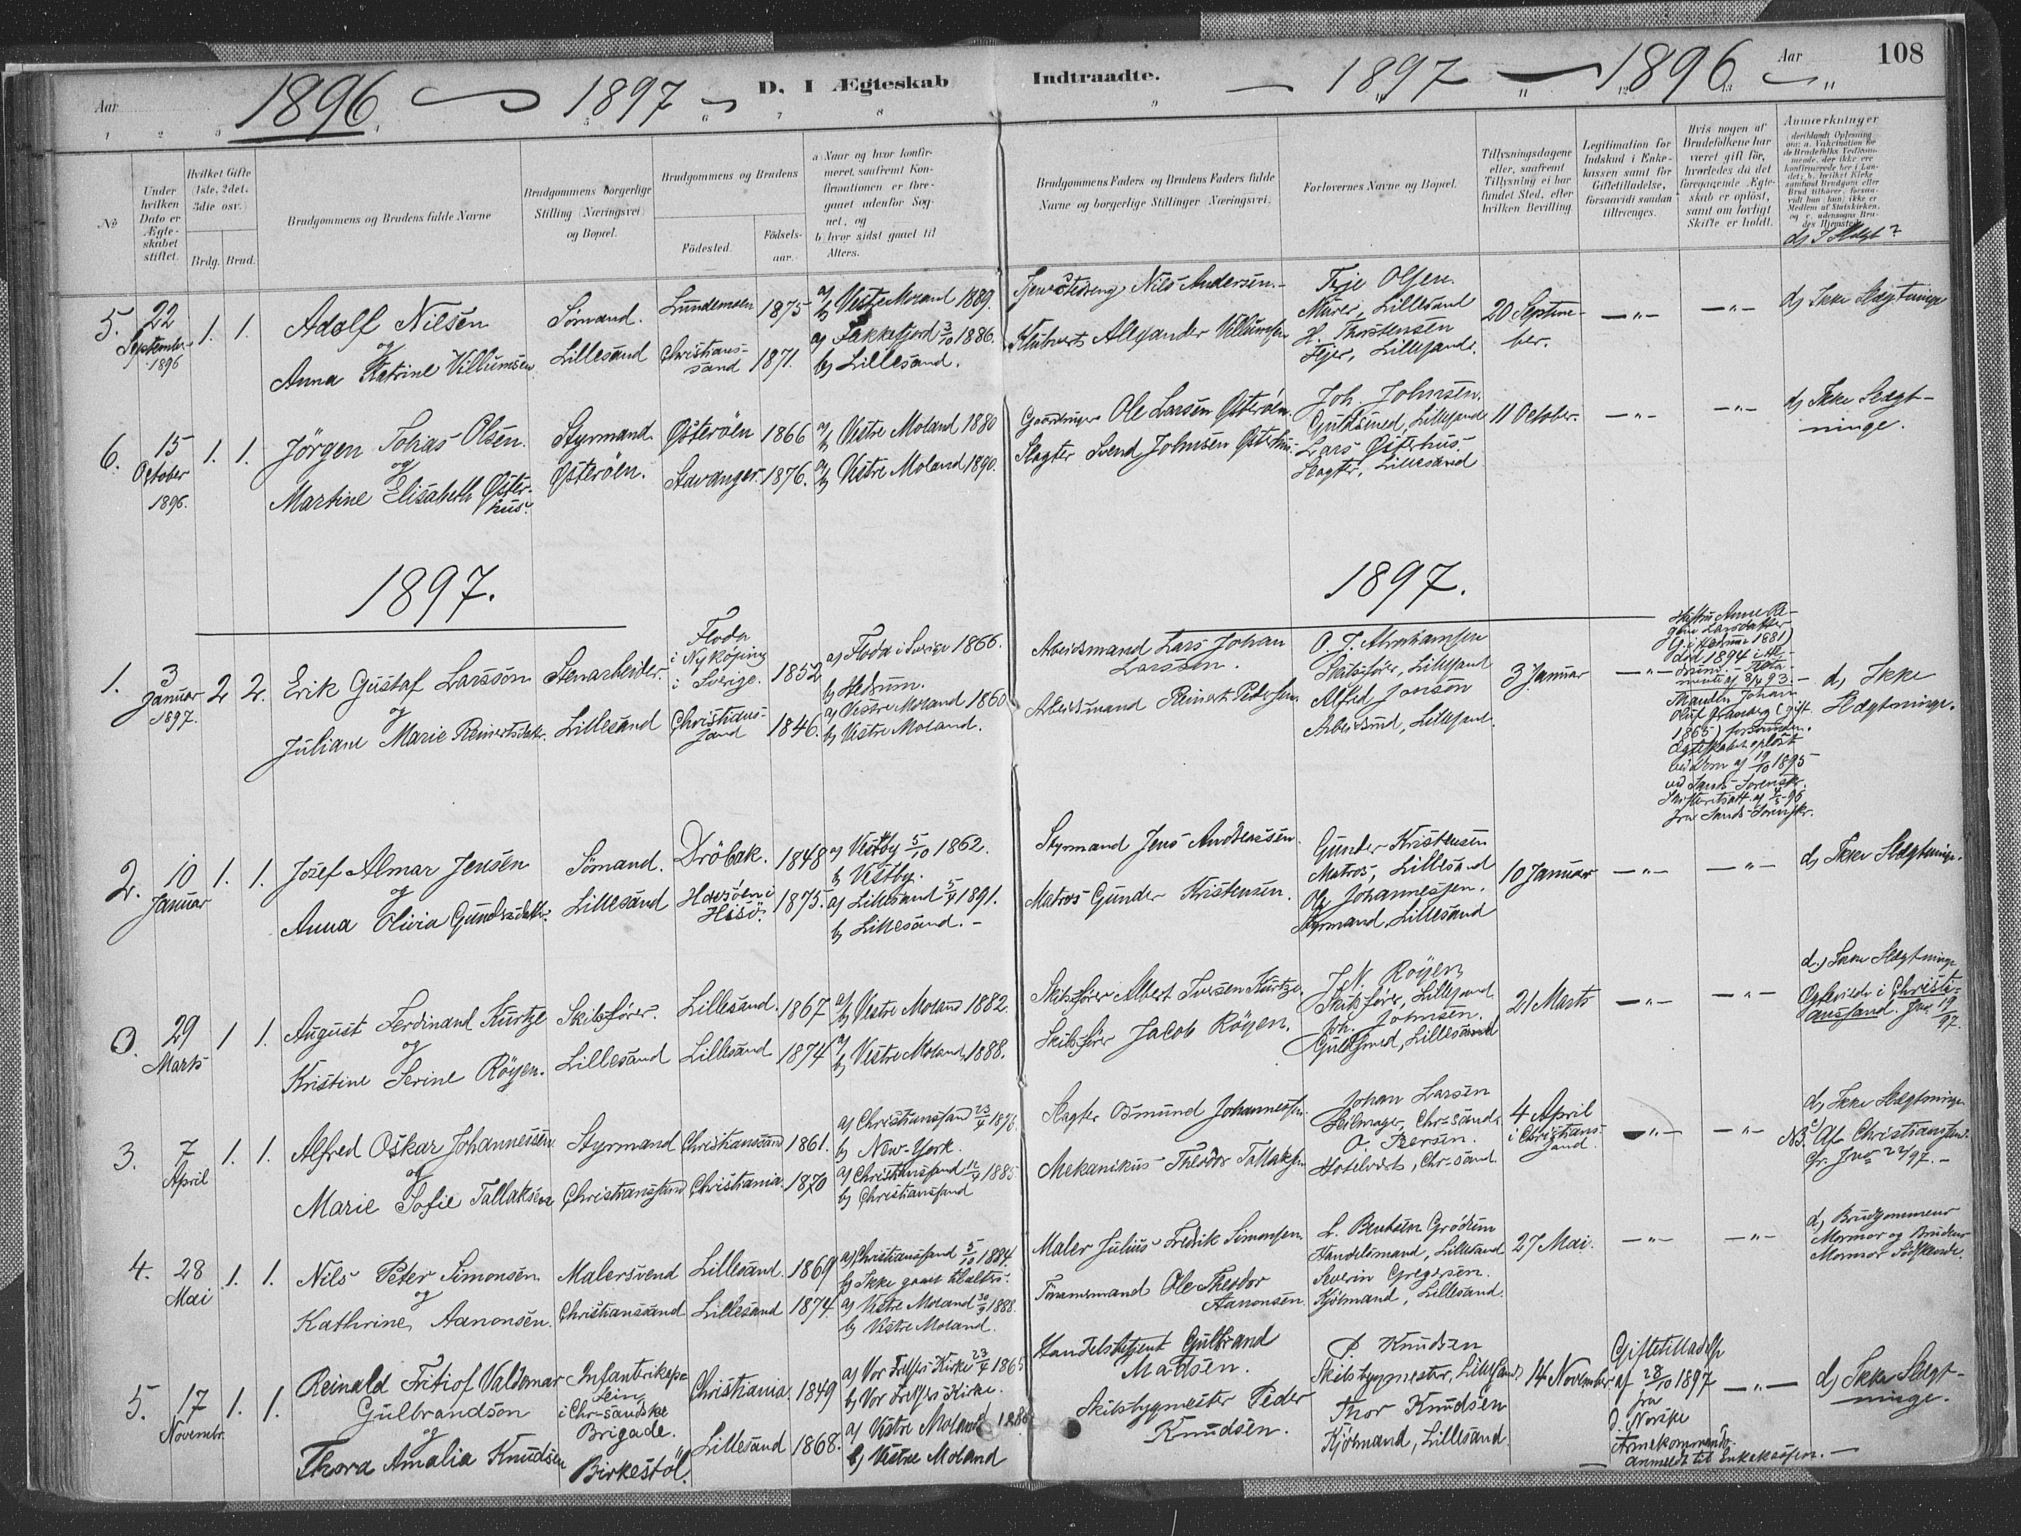 Aar
1896
1897
D. I Ægteskab
Indtraadte.
1897
1896
Aar
108
1 2 3 4 5 6 7 8 9 11 12 13 14
No
Under hvilken Dato er Ægteskabet stiftet.
Hvilket Gifte (1ste, 2det, 3die osv.)
Brdg. Brud.
Brudgommens og Brudens fulde Navne
Brudgommens borgerlige Stilling (Næringsvei) og Bopæl.
Brudgommens og Brudens
Födested.
Födselsaar.
a) Naar og hvor konfirmeret, saafremt Konfirmationen er foregaaet udenfor Sognet, og
b) hvor sidst gaaet til Alters.
Brudgommens Faders og Brudens Faders fulde Navne og borgerlige Stillinger (Næringsvei)
Forlovernes Navne og Bopæl.
Tillysningsdagene eller, saafremt Tillysning ei har fundet Sted, efter hvilken Bevilling
Legitimation for Indskud i Enkekassen samt for Giftetilladelse, forsaavidt saadan tiltrænges.
Hvis nogen af Brudefolkene har været gift för, hvorledes da det foregaaende Ægteskab er oplöst, samt om lovligt Skifte er holdt.
Anmærkninger
5. 22 September 1896 1. 1.
Adolf Nilsen
og
Anna Katrine Villumsen
Sömand.
Lillesand
Lundemoen 1875
Christianssand 1871.
a) b) Vestre Moland 1889.
a) Fækkefjord 3/10 1886.
b) Lillesand.
Nils Andersen.
Alexander Villumsen
Terje Olsen
Murer, Lillesand
H. Thorstensen
Fejer, Lillesand.
20 September.
d) Ikke Slægtninge
6. 15 October 1896. 1. 1.
Jörgen Tobias Olsen.
og
Martine Elisabeth Österhus.
Styrmand.
Österöen.
Österöen 1866
Stavanger. 1876.
a) b) Vestre Moland 1880
a) b) Vestre Moland 1890.
Gaardbruger Ole Larsen Österöen.
Slagter Svend Johnsen Österhus.
Joh. Johnsen.
Guldsmed, Lillesand
Lars Österhus.
Slagter, Lillesand
11 October.
d) Ikke Slægtninge.
1897.
1897.
1. 3 Januar 1897. 2. 2.
Erik Gustaf Larsson
og
Juliane Marie Reinertsdatr.
Stenarbeider.
Lillesand
Floda i Nyköping i Sverige. 1852
Christianssand 1846.
a) Floda i Sverige 1866.
b) Hedrum.
a) Vestre Moland 1860
b) Vestre Moland.
Arbeidsmand Lars Johan Larsson.
Arbeidsmand Reinert Pedersen
O. J. Abrahamsen
Skibsförer, Lillesand
Alfred Jonson
Arbeidsmd, Lillesand.
3 Januar
Hustru Anne Regine Larsdatter
(g. i Hedrum 1881)
död 1894 i
Manden Johan
Oluf (gift
1865) forsvunden.
Ægteskabet oplöst
ved Dom af 19/10 1895
fra Sands Sorenskr.
d) Ikke Slægtninge.
2. 10 Januar 1. 1.
Josef Almar Jensen
og
Anna Olivia Gundersdatr.
Sömand.
Lillesand
Dröbak. 1848
Havsöen i Hisö. 1875.
a) Vestby 5/10 1862.
b) Vestby.
a) Lillesand 5/4 1891.
b) Lillesand.
Styrmand Jens Andreassen.
Matros Gunder Kristensen.
Gunder Kristensen
Matros, Lillesand
Ole Johannessen.
Styrmand, Lillesand
10 Januar
d) Ikke Slægtninge.
0. 29 Marts 1 1.
August Ferdinand Kurtze
og
Kristine Serine Röyen.
Skibsförer.
Lillesand
Lillesand. 1867
Lillesand 1874
a) b) Vestre Moland 1882.
a) b) Vestre Moland 1888.
Skibsförer Albert Iversen Kurtze.
Skibsförer Jacob Röyen.
J. N. Röyen
Skibsförer, Lillesand
Joh. Johnsen.
Guldsmed, Lillesand
21 Marts
d.) Ikke Slægtninge
Copuleret i Christianssand. Jno 19/97.
3. 7 April 1. 1.
Alfred Oskar Johannessen
og
Marie Sofie Tallaksen
Styrmand
Christianssand
Christianssand 1861.
Christiania. 1870
a) Christianssand 23/4 1876.
b) New-York.
a) Christianssand 12/4 1885
b) Christianssand
Slagter Osmund Johannessen.
Mekanikus Theodor Tallaksen
Johan Larsen
Seilmager, Chr-sand.
O. Iversen.
Hotelvært, Chr-sand.
4 April i Christianssand.
d) Ikke Slægtninge
NB. Af Christianssand.
cfr. Jno 22/97.
4. 28 Mai 1. 1.
Nils Peter Simonsen
og
Kathrine Aanonsen.
Malersvend
Christianssand
Lillesand. 1869
Lillesand 1874.
a) Christianssand 5/10 1884.
b) Ikke gaaet til alters.
a) Vestre Moland 30/9 1888.
b) Vestre Moland.
Maler Julius Fredrik Simonsen.
Tömmermand Ole Theodor Aanonsen.
L. Bentsen Grödum
Handelsmand, Lillesand
Severin Gregersen.
Kjöbmand, Lillesand.
27 Mai.
d) Brudgommens Mormor og Brudens Mormor Södskende.
5. 17 Novembr. 1. 1.
Reinald Fritiof Valdemar
Gulbrandson
og
Thora Amalia Knudsen
Infanterikaptein
i Chr-sandske
Brigade.
Birkestöl.
Christiania. 1849
Lillesand 1868.
a) Vor Frelsers Kirke 23/4 1865
b) Vor Frelsers Kirke.
a) Vestre Moland 188
b) Vestre Moland
Handelsbetjent Gulbrand Madsen.
Skibsbygmester Peder Knudsen.
P. Knudsen
Skibsbygmester, Lillesand
Thor Knudsen
Kjöbmand, Lillesand.
14 November
Giftetilladelse
af 28/10 1897
fra
d. Norske
Armekommando.
anmeldt til Enkekassen.
d) Ikke Slægtninge.